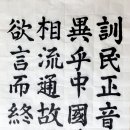 訓民正音
異乎中國
相流通故
欲言而終